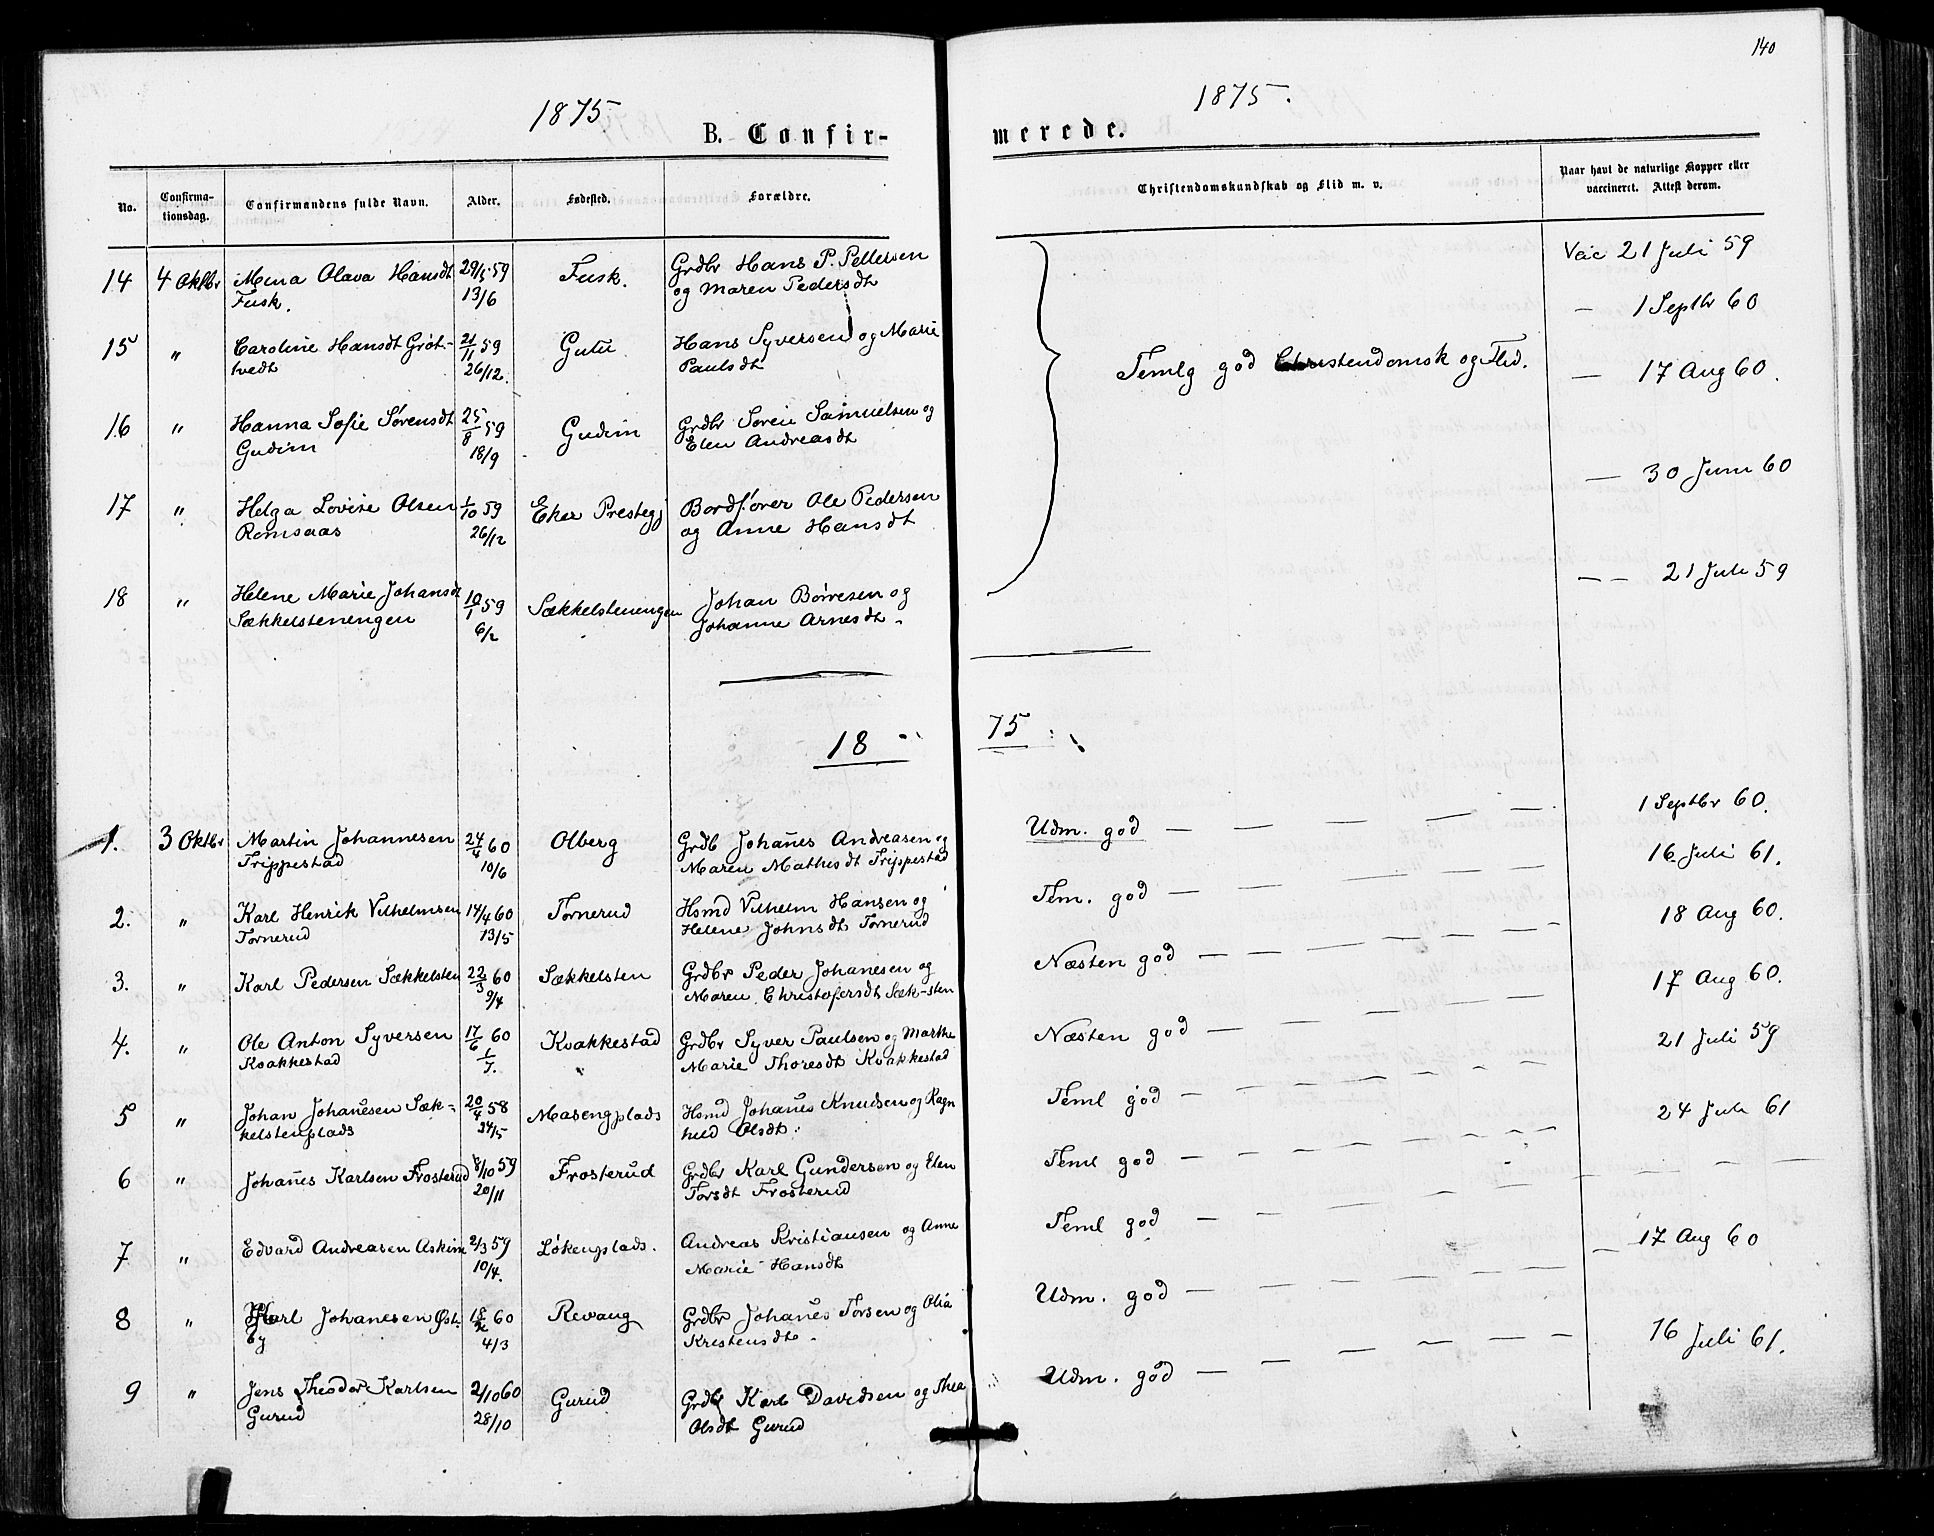 140
1875
1875.
B. Confir-
merede.
No.
Confirma-
tionsdag.
Confirmandens fulde Navn.
Alder.
Fødested.
Forældre.
Christendomskundskab og Flid m. v.
Naar havt de naturlige Kopper eller
vaccineret. Attest derom.
14 4 Oktbr Mina Olava Hansdt 29/5 59 Fusk. Grdbr Hans P. Pettersen Vac 21 Juli 59
Fusk. 13/6 og Maren Pedersdt
— 1 Septbr 60
15 " Caroline Hansdt Grøt- 21/11 59 Gutu Hans Syversen og Marie
vedt 26/12. Paulsdt
Temlg god Christendomsk og Flid. — 17 Aug 60.
16 " Hanna Sofie Sørensdt 25/8 59 Gudim Grdbr Søren Samuelsen og
Gudim 18/9 Elen Andreasdt
— 30 Juni 60
17 " Helga Lovise Olsen 1/10 59 Eker Prestegj Bordfører Ole Pedersen
Romsaas 26/12 og Anne Hansdt
— — 21 Juli 59
18 " Helene Marie Johansdt 10/1 59 Sækkelstenengen Johan Børresen og
Sækkelstenengen 6/2 Johanne Arnesdt.
18 75
1. 3 Oktbr Martin Johannesen 24/4 60 Olberg Grdb Johañes Andreasen og Udm. god — — — — — 1 Septbr 60.
Trippestad 10/6 Maren Mathisdt Trippestad
2. " Karl Henrik Vilhelmsen 14/4 60 Tørnerud Hsmd Vilhelm Hansen og Tem. god — — — — — 16 Juli 61.
Tørnerud 13/5 Helene Johnsdt Tørnerud
3. " Karl Pedersen Sækkelsten 22/3 60 Sækkelsten Grdbr Peder Johanesen og Næsten god — — — — — 18 Aug 60.
9/4 Maren Christofersdt Sæk-sten
4. " Ole Anton Syversen 17/6 60 Kvakkestad Grdbr Syver Paulsen og Marthe Næsten god — — — — — 17 Aug 60.
Kvakkestad 1/7. Marie Thoresdt Kvakkestad
5 " Johan Johañesen Sæk- 20/4 58 Masengplads Hsmd Johañes Knudsen og Ragn Teml god — — — — — 21 Juli 59
kelstenplads 24/5 hild Olsdt.
6 " Johañes Karlsen Frosterud 8/10 59 Frosterud Grdbr Karl Gundersen og Elen Teml god — — — — — 24 Juli 61
20/11 Torsdt Frosterud
7 " Edvard Andreasen Askim 2/3 59 Løkenplads. Andreas Kristiansen og Anne Teml god — — — — — — — —
10/4. Marie Hansdt
8 " Karl Johanesen Øst- 18/2 60 Revaug Grdbr Johañes Torsen og Olia Udm. god — — — — — — 17 Aug 60
by 4/3 Kristensdt.
9 " Jens Theodor Karlsen 2/10 60 Gurud Grdbr Karl Davidsen og Thea Udm. god — — — — — 16 Juli 61.
Gurud 28/10 Olsdt Gurud